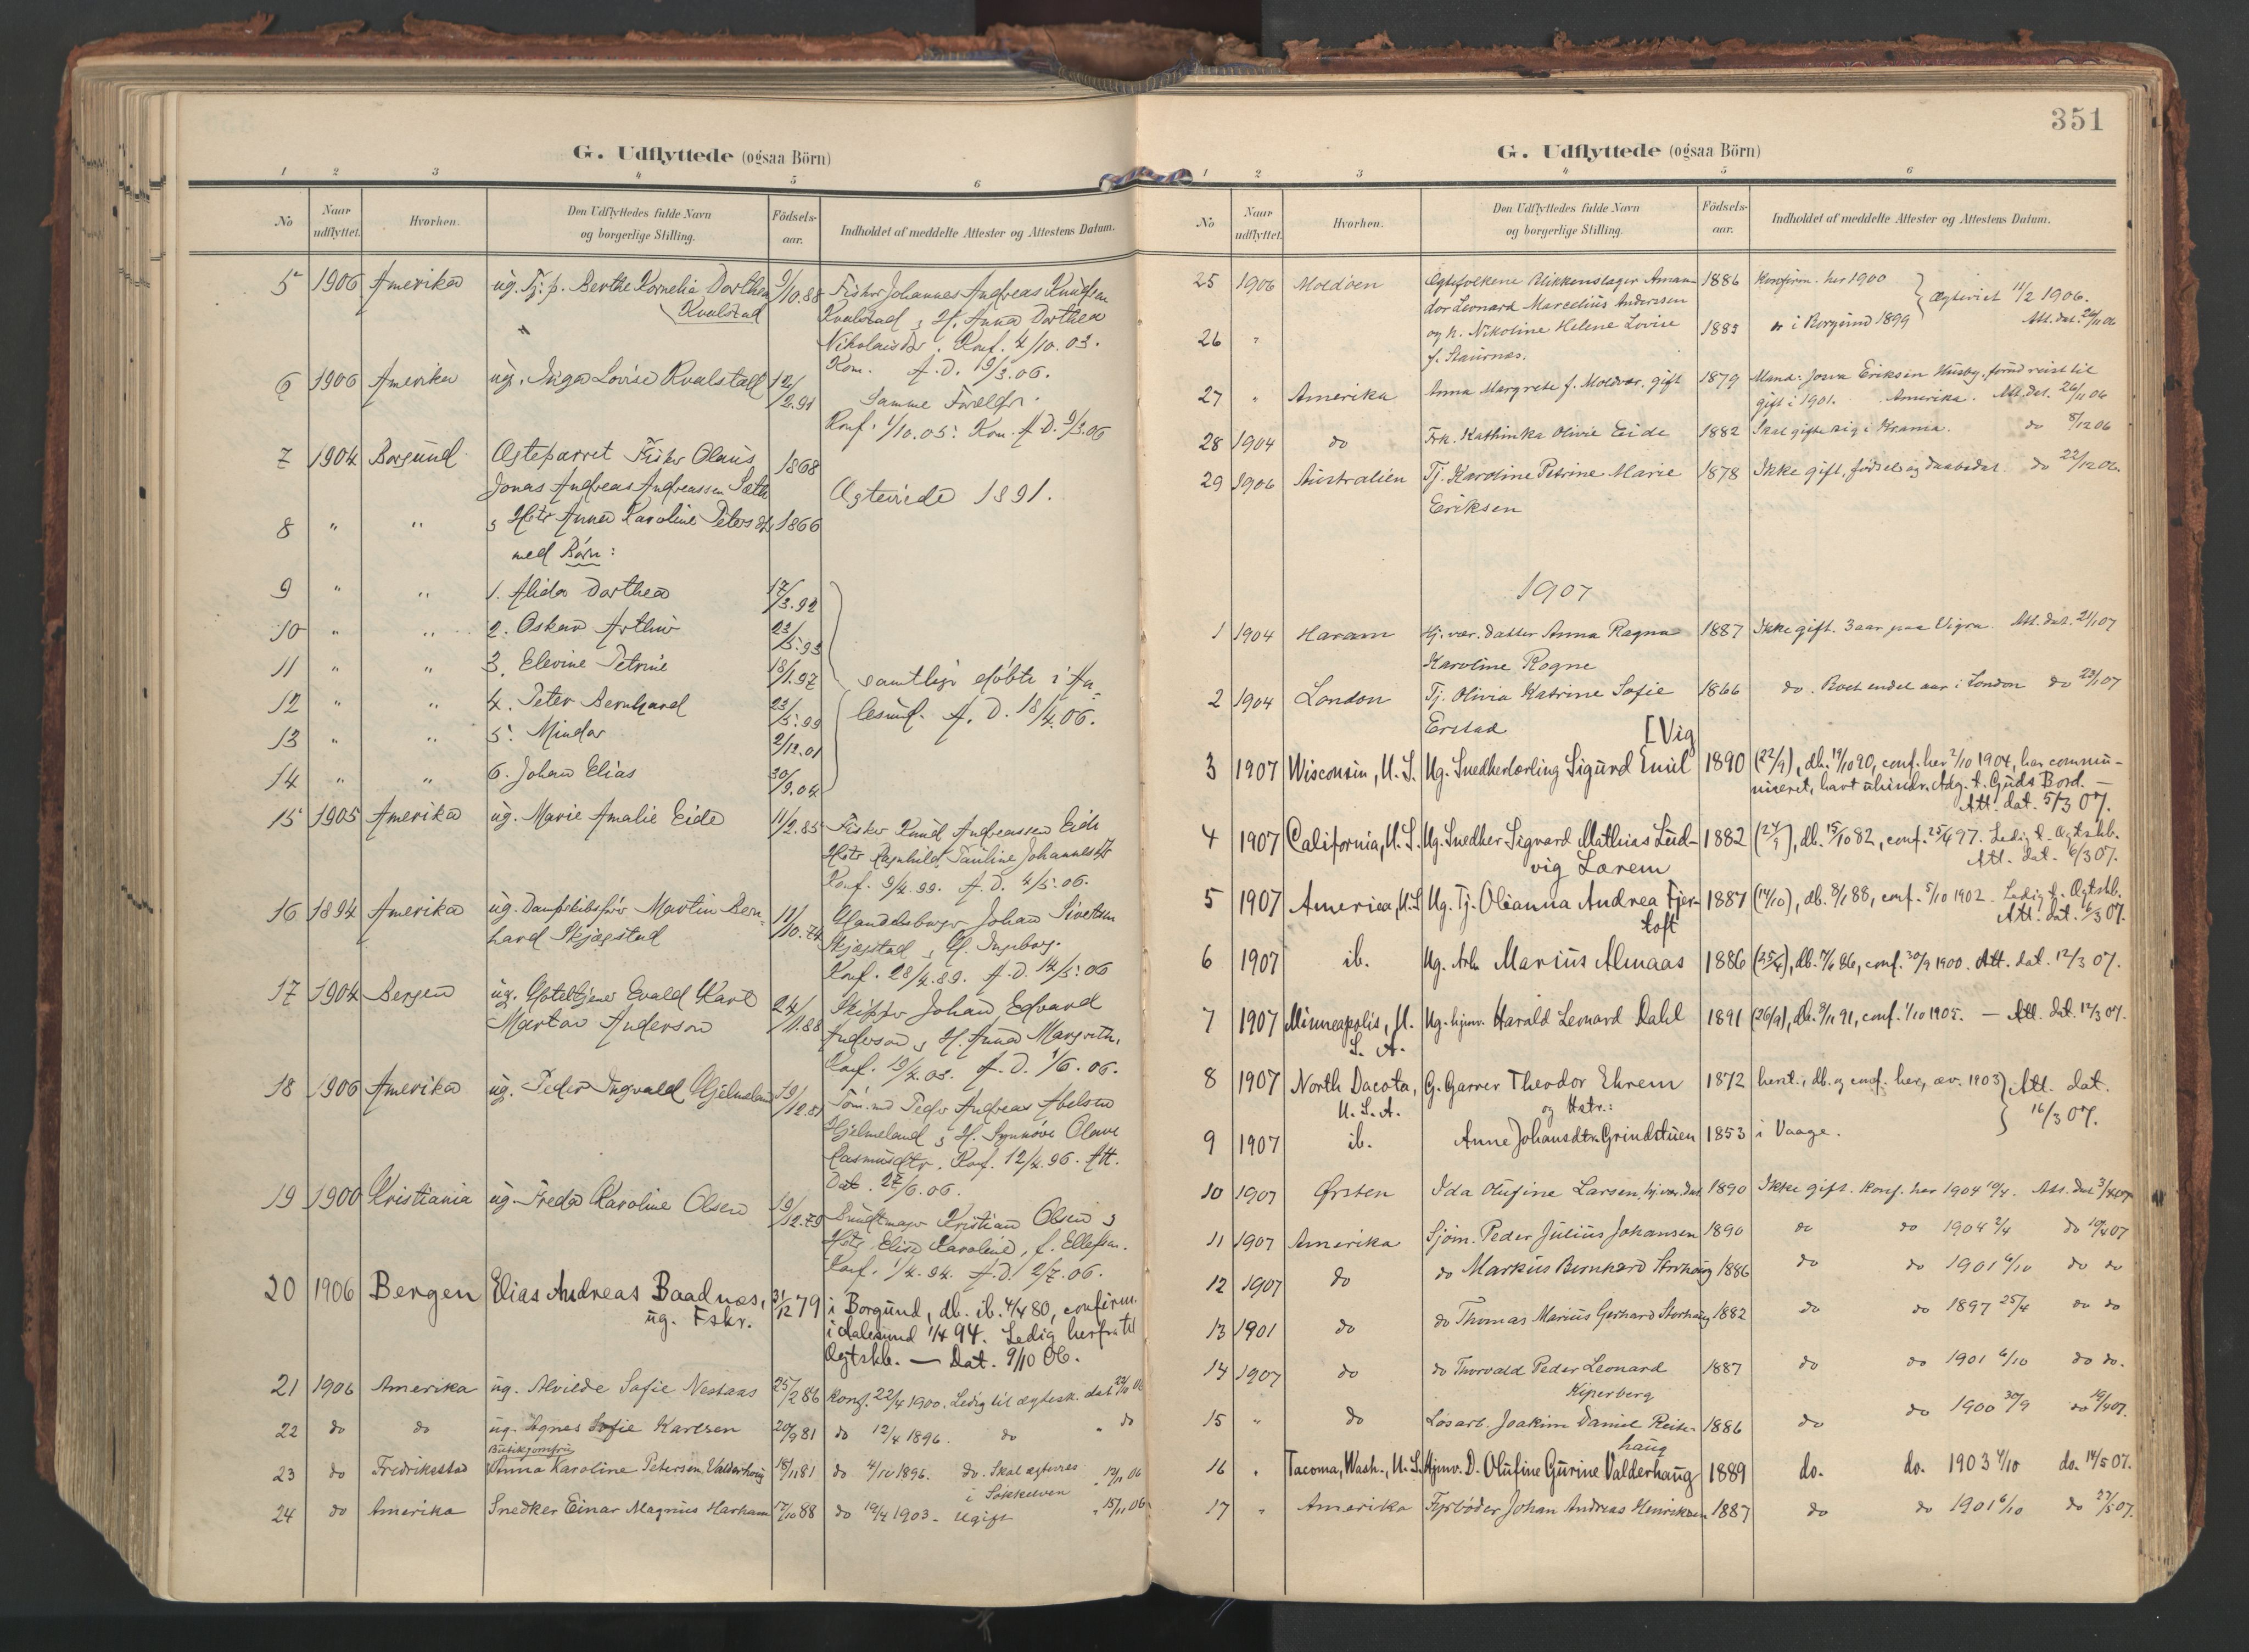 G. Udflyttede (ogsaa Börn)
1 2 3 4 5 6
No
Naar udflyttet.
Hvorhen.
Den Udflyttedes fulde Navn og borgerlige Stilling.
Födsels-aar.
Indholdet af meddelte Attester og Attestens Datum.
5 1906 Amerika ug. Tj. p. Berthe Kornelia Dorthea 9/10.88 Fisker Johannes Andreas Knudsen
Kvalstad Kvalstad & H. Anna Dorthea
Nikolaisdr. Konf. 4/10.03.
Kom. A.D. 19/3.06.
6 1906 Amerika ug. Inga Lovise Kvalstad 12/2.91 Samme Forældr.
Konf. 1/10.05. Kom. A.D. 9/3.06
7 1904 Borgund Ægteparret Fisker Olaus 1868
Jonas Andreas Andreassen Sæth
Ægteviede 1891.
8 " " & Hstr Anna Karoline Petersdtr 1866
med Børn:
9 " " 1. Alida Dorthea 17/3.92
10 " " 2. Oskar Arthur 23/5.93
11 " " 3. Elevine Petrine 18/1.97
samtlige døbte i Aa-
12 " " 4. Peter Bernhard 23/5.99
lesund. A.D. 18/4.06.
13 " " 5. Mindor 2/12.01
14 " " 6. Johan Elias 30/9.04
15 1905 Amerika ug. Marie Amalie Eide 11/2.85 Fisker Knud Andreassen Eide
Hstr Ragnhild Pauline Johannesdtr
Konf. 9/4.99. A.D. 4/5.06.
16 1894 Amerika ug. Dampskibsfør Martin Bern- 11/10.74 Handelsborger Johan Sivertsen
hard Skjægstad Skjægstad & H. Ingeborg.
Konf. 28/4.89. A.D. 14/5.06
17 1904 Bergen ug. Hoteltjener Evald Karl 24/11.88 Skipper Johan Edvard
Marton Anderson Anderson & H. Anna Margrethe.
Konf. 19/4.03. A.D. 1/6.06.
18 1906 Amerika ug. Peder Ingvald Hjelmeland 19/12.81 Tøm.md Peder Andreas Abelsen
Hjelmeland & H. Synnöve Olave
Rasmusdtr. Konf. 12/4.96. Att.
Dat. 27/6.06.
19 1900 Kristiania ug. Freda Karoline Olsen 19/12.79 Kristian Olsen &
Hstr Elise Karoline, f. Ellefsen.
Konf. 1/4.94. A.D. 2/7.06.
20 1906 Bergen Elias Andreas Baadnæs, 31/12 79 i Borgund, db. ib. 4/4 80, confirm.
ug. Fskr. i Aalesund 1/4 94. Ledig herfra til
Ægtskb. — Dat. 9/10 06.
21 1906 Amerika ug. Alvilde Sofie Nestaas 25/2 86 Konf. 22/4 1900. Ledig til ægtesk. dat 22/10 06
22 do do ug. Agnes Sofie Karlsen 20/9 81 do 12/4 1896. do " do
Butikjomfru
23 do Fredriksstad Anna Karoline Petersen Valderhoug 18/11 81 do 4/10 1896. do. Skal ægtevies " 13/11 06
i Søkkelven
24 do Amerika Snedker Einar Magnus Harham 17/10 88 do 19/4 1903. Ugift " 15/11 06
351
G. Udflyttede (ogsaa Börn)
1 2 3 4 5 6
No
Naar udflyttet.
Hvorhen.
Den Udflyttedes fulde Navn og borgerlige Stilling.
Födsels-aar.
Indholdet af meddelte Attester og Attestens Datum.
25 1906 Moldöen Ægtefolkene Blikkenslager Aman- 1886 Konfirm. her 1900
dor Leonard Marcelius Andersen } Ægteviet 11/2 1906.
26 " og h. Nikoline Helene Lovise 1885 " i Borgund 1899 Att. dat. 26/11 06
f. Staurnæs.
27 " Amerika Anna Margrete f. Moldvær, gift 1879 Mand: Josva Eriksen Husby, forud reist til
gift i 1901. Amerika. Att. dat. 26/11 06
28 1904 do Frk. Kathinka Olivie Eide 1882 Skal gifte sig i Krania. do 8/12 06
29 1906 Australien Tj. Karoline Petrine Marie 1878 Ikke gift, födsels og daabsdat. do 22/12 06.
Eriksen
1907
1 1904 Haram Hj.vær. datter Anna Ragna 1887 Ikke gift. 3 aar paa Vigra. Att. dat. 21/1 07
Karoline Rogne
2 1904 London Tj. Olivia Katrine Sofie 1866 do. Boet endel aar i London do 23/1 07
Erstad [Vig
3 1907 Wisconsin, U.S. Ug. Snedkerlærling Sigurd Emil 1890 (22/9), db. 19/10 90, conf. her 2/10 1904, har commu-
niceret, havt uhindr. Adg. t. Guds Bord. —
Att. dat. 5/3 07.
4 1907 California, U.S. Ug. Snedker Sigvard Mathias Lud- 1882 (24/9), db. 15/10 82, conf. 25/4 97. Ledig t. Ægtskb.
vig Lorem Att. dat. 6/3 07.
5 1907 America, U.S. Ug. Tj. Oleanna Andrea Fjør- 1887 (14/10), db. 8/1 88, conf. 5/10 1902. Ledig t. Ægtskb.
toft Att. dat. 6/3 07.
6 1907 ib. Ug. Arb. Marius Almaas 1886 (25/4), db. 7/6 86, conf. 30/9 1900. Att. dat. 12/3 07.
7 1907 Minneapolis, U. Ug. hjmv. Harald Leonard Dahl 1891 (26/9), db. 8/11 91, conf. 1/10 1905. — Att. dat. 12/3 07.
S. A.
8 1907 North Dacota, G. Garver Theodor Ehrem 1872 heret., db. og conf. her, æv. 1903 } Att. dat.
U.S.A. og Hstr.: 16/3 07.
9 1907 ib. Anne Johansdtr. Grindstuen 1853 i Vaage.
10 1907 Ørsten Ida Olufine Larsen, hj.vær.dat. 1890 Ikke gift. Konf. her 1904 10/4. Att. dat 3/4 07
11 1907 Amerika Sjöm. Peder Julius Johansen 1890 do do 1904 2/4 do 10/4 07
12 1907 do do Markus Bernhard Storhaug 1886 do do 1901 6/10 do do
13 1901 do do Thomas Marius Gerhard Storhaug 1882 do do 1897 25/4 do do
14 1907 do do Thorvald Peder Leonard 1887 do do 1901 6/10 do do.
Kiperberg
15 " do Løsarb. Joakim Daniel Reite- 1886 do do 1900 30/9 do 19/4 07.
haug
16 " Tacoma, Wash., U.S. Hjmv. D. Olufine Gurine Valderhaug 1889 do. do. 1903 4/10 do. 14/5 07.
17 " Amerika Fyrböder Johan Andreas Henriksen 1887 do do 1901 6/10 do 27/5 07.